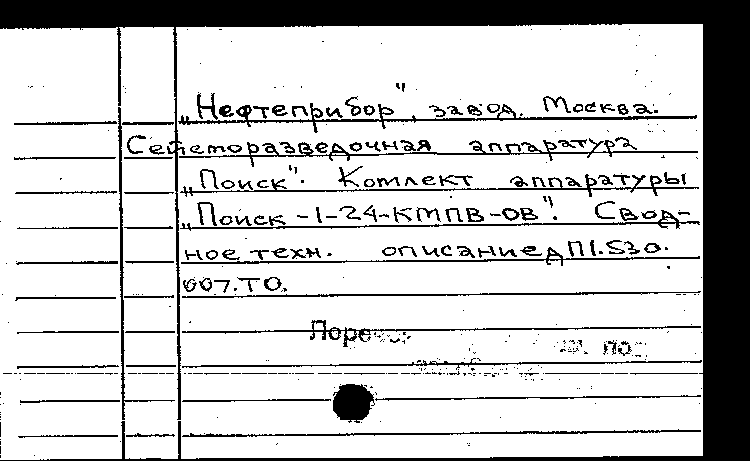 „Нефтеприбор", завод. Москва.
Сейсморазведочная аппаратура
„Поиск". Комлект аппаратуры
„Поиск-1-24-КМПВ-ОВ". Свод-
ное техн. описание ДП1.530.
007.ТО.